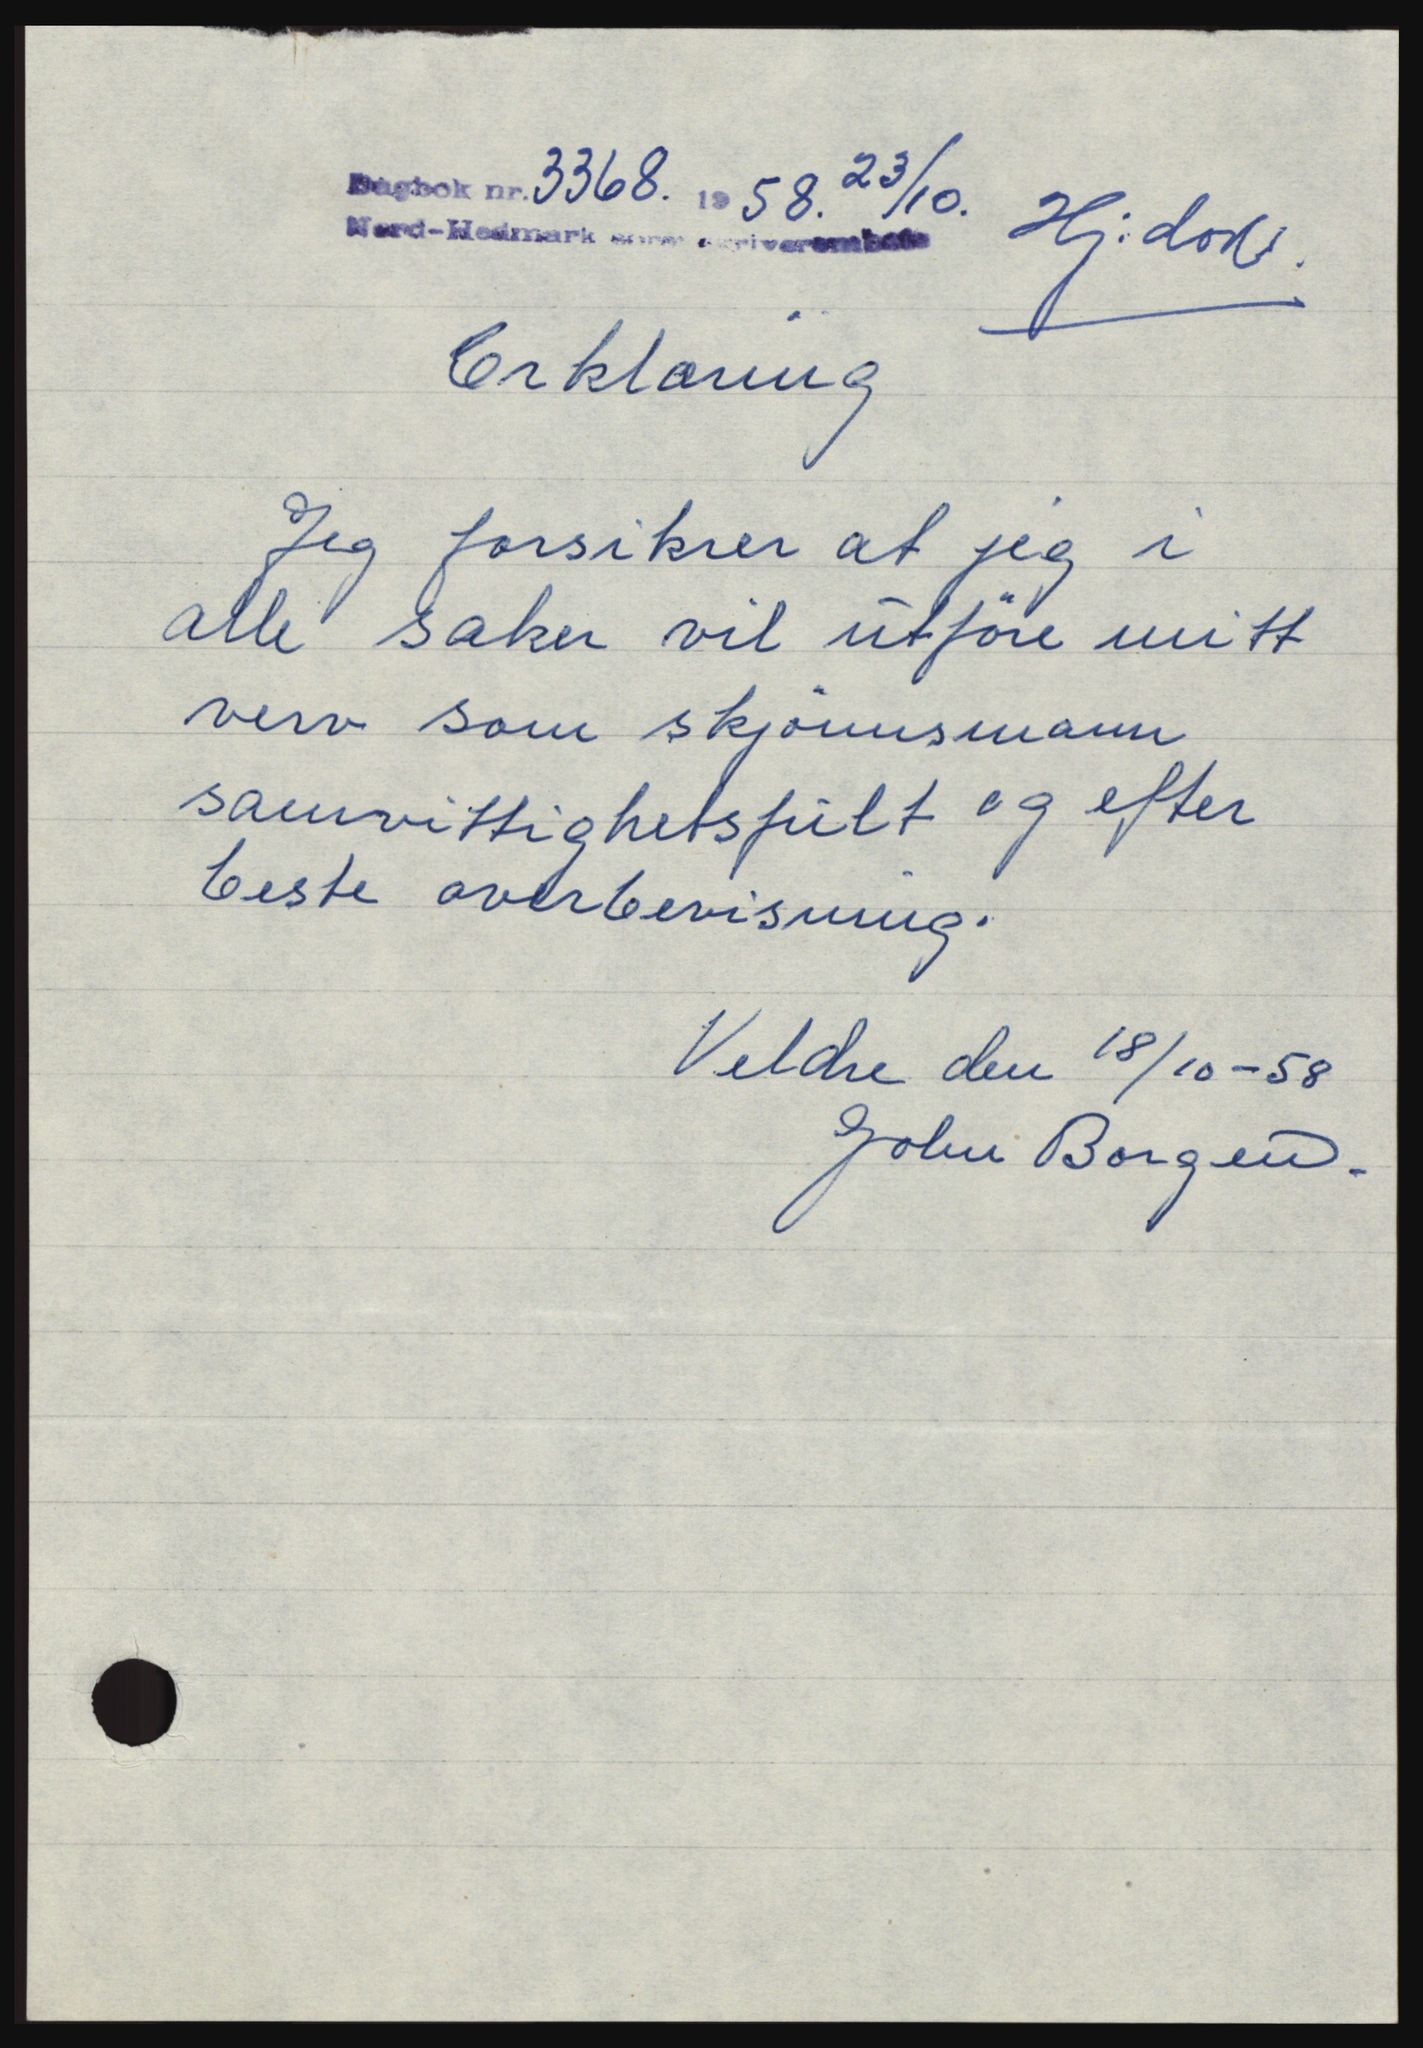 Dagbok nr. 3368. 19 58. 23/10.
Nord-Hedmark sorenskriverembete
Hj: dok.
Erklæring
Jeg forsikrer at jeg i
alle saker vil utföre mitt
verv som skjönnsmann
samvittighetsfullt og efter
beste overbevisning.
Veldre den 18/10-58
John Borgen.